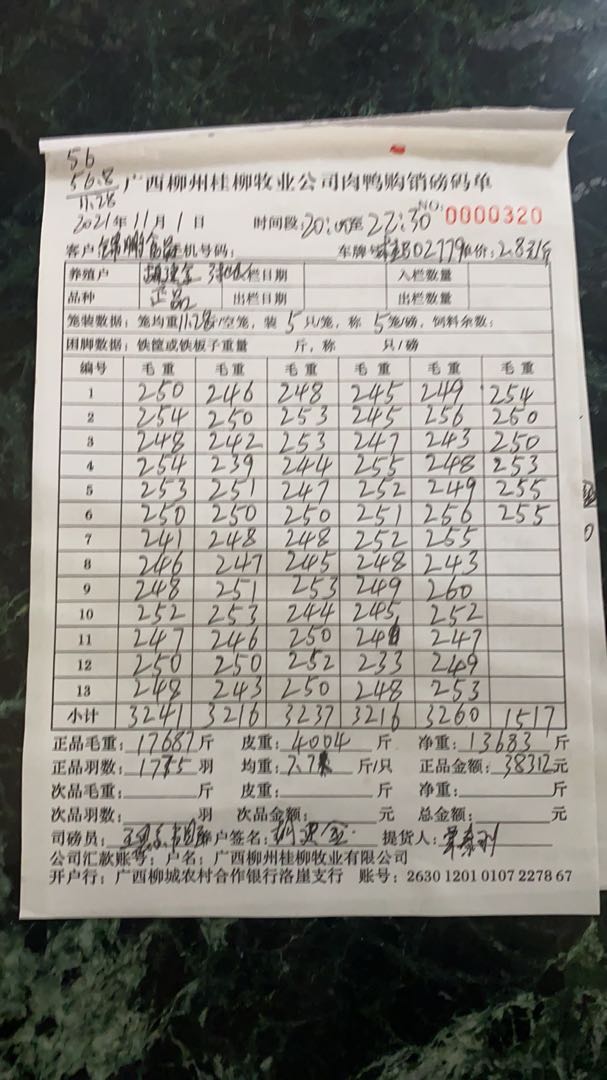 56
56.8
11.28
广西柳州桂柳牧业公司肉鸭购销磅码单
2021年 11月 1日 时间段: 20:00至 22:30 NO: 0000320
客户: 锦鹏食品 手机号码: 车牌号: B02779 单价: 2.8元/斤
养殖户 出栏日期 入栏数量
品种 正品 出栏日期 出栏数量
笼装数据: 笼均重11.28斤/空笼, 装 5 只/笼, 称 5 笼/磅, 饲料余数:
困脚数据: 铁筐或铁板子重量 斤, 称 只/磅
编号 毛重 毛重 毛重 毛重 毛重 毛重
1 250 246 248 245 249 254
2 254 250 253 245 256 250
3 248 242 253 247 243 250
4 254 239 244 255 248 253
5 253 251 247 252 249 255
6 250 250 250 251 256 255
7 241 248 248 252 255
8 246 247 245 248 243
9 248 251 253 249 260
10 252 253 244 245 252
11 247 246 250 247
12 250 250 252 233 249
13 248 243 250 248 253
小计 3241 3216 3237 3216 3260 1517
正品毛重: 17687斤 皮重: 4004 斤 净重: 13683 斤
正品羽数: 1775 羽 均重: 7.7 斤/只 正品金额: 38312元
次品毛重: 斤 皮重: 斤 净重: 斤
次品羽数: 羽 次品金额: 元 总金额: 元
司磅员: 养户签名: 提货人:
公司汇款账号: 户名: 广西柳州桂柳牧业有限公司
开户行: 广西柳城农村合作银行洛崖支行 账号: 2630 1201 0107 2278 67